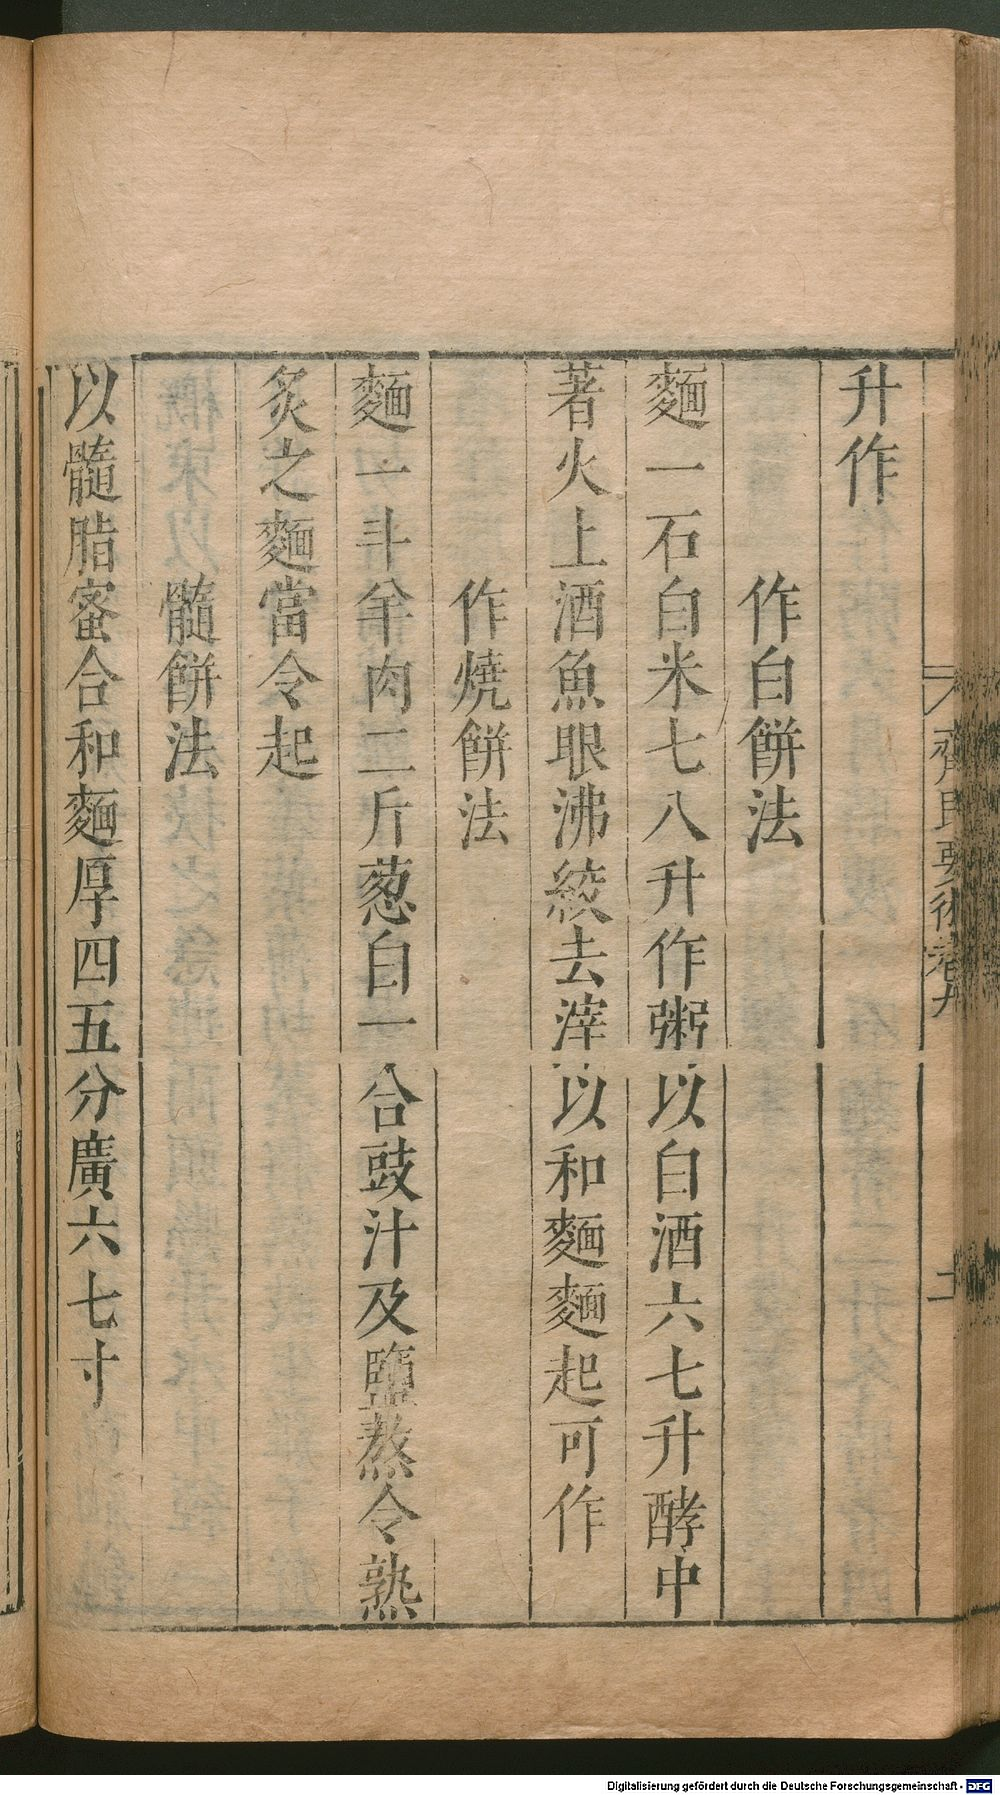 升作
作白餅法
麵一石白米七八升作粥以白酒六七升酵中
著火上酒魚眼沸絞去滓以和麵麵起可作
作燒餅法
麵一斗羊肉二斤葱白一合豉汁及鹽熬令熟
炙之麵當令起
髓餅法
以髓脂蜜合和麵厚四五分廣六七寸
齊民要術卷九
Digitalisierung gefördert durch die Deutsche Forschungsgemeinschaft - DFG